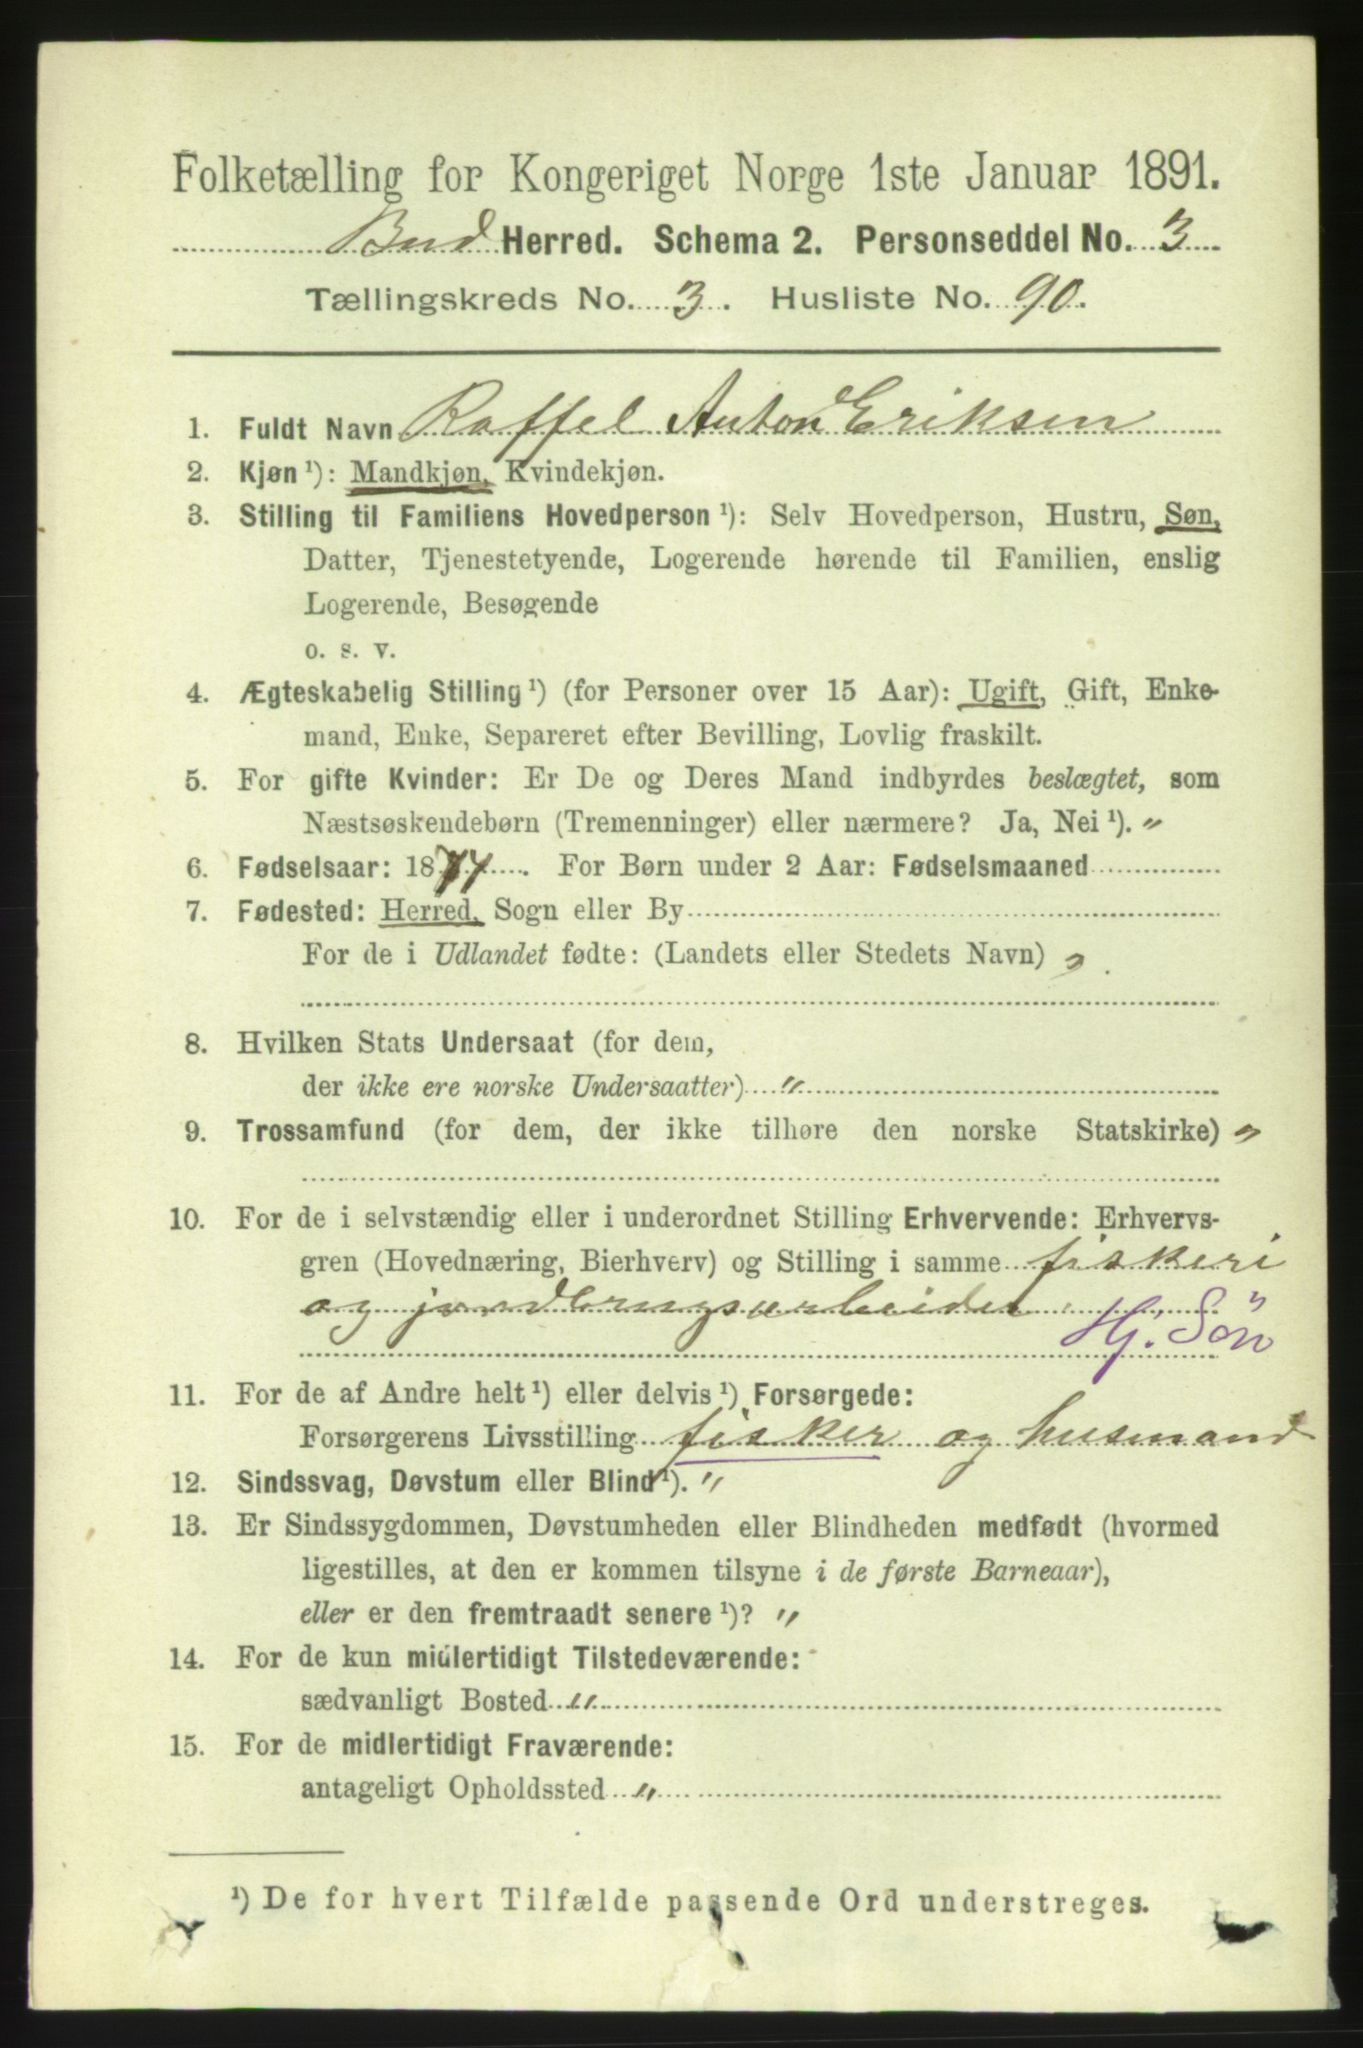 Folketælling for Kongeriget Norge 1ste Januar 1891.
Bud Herred. Schema 2. Personseddel No. 3
Tællingskreds No. 3. Husliste No. 90.
1. Fuldt Navn Raffel Anton Eriksen
2. Kjøn ¹): Mandkjøn, Kvindekjøn.
3. Stilling til Familiens Hovedperson ¹): Selv Hovedperson, Hustru, Søn,
Datter, Tjenestetyende, Logerende hørende til Familien, enslig
Logerende, Besøgende
o. s. v.
4. Ægteskabelig Stilling ¹) (for Personer over 15 Aar): Ugift, Gift, Enke-
mand, Enke, Separeret efter Bevilling, Lovlig fraskilt.
5. For gifte Kvinder: Er De og Deres Mand indbyrdes beslægtet, som
Næstsøskendebørn (Tremenninger) eller nærmere? Ja, Nei ¹). "
6. Fødselsaar: 1874. For Børn under 2 Aar: Fødselsmaaned
7. Fødested: Herred, Sogn eller By
For de i Udlandet fødte: (Landets eller Stedets Navn) "
8. Hvilken Stats Undersaat (for dem,
der ikke ere norske Undersaatter) "
9. Trossamfund (for dem, der ikke tilhøre den norske Statskirke) "
10. For de i selvstændig eller i underordnet Stilling Erhvervende: Erhvervs-
gren (Hovednæring, Bierhverv) og Stilling i samme fiskeri
og jordbrugsarbeider
Hj. Sön
11. For de af Andre helt ¹) eller delvis ¹) Forsørgede:
Forsørgerens Livsstilling fisker og husmand
12. Sindssvag, Døvstum eller Blind ¹). "
13. Er Sindssygdommen, Døvstumheden eller Blindheden medfødt (hvormed
ligestilles, at den er kommen tilsyne i de første Barneaar),
eller er den fremtraadt senere ¹)? "
14. For de kun midlertidigt Tilstedeværende:
sædvanligt Bosted "
15. For de midlertidigt Fraværende:
antageligt Opholdssted "
¹) De for hvert Tilfælde passende Ord understreges.